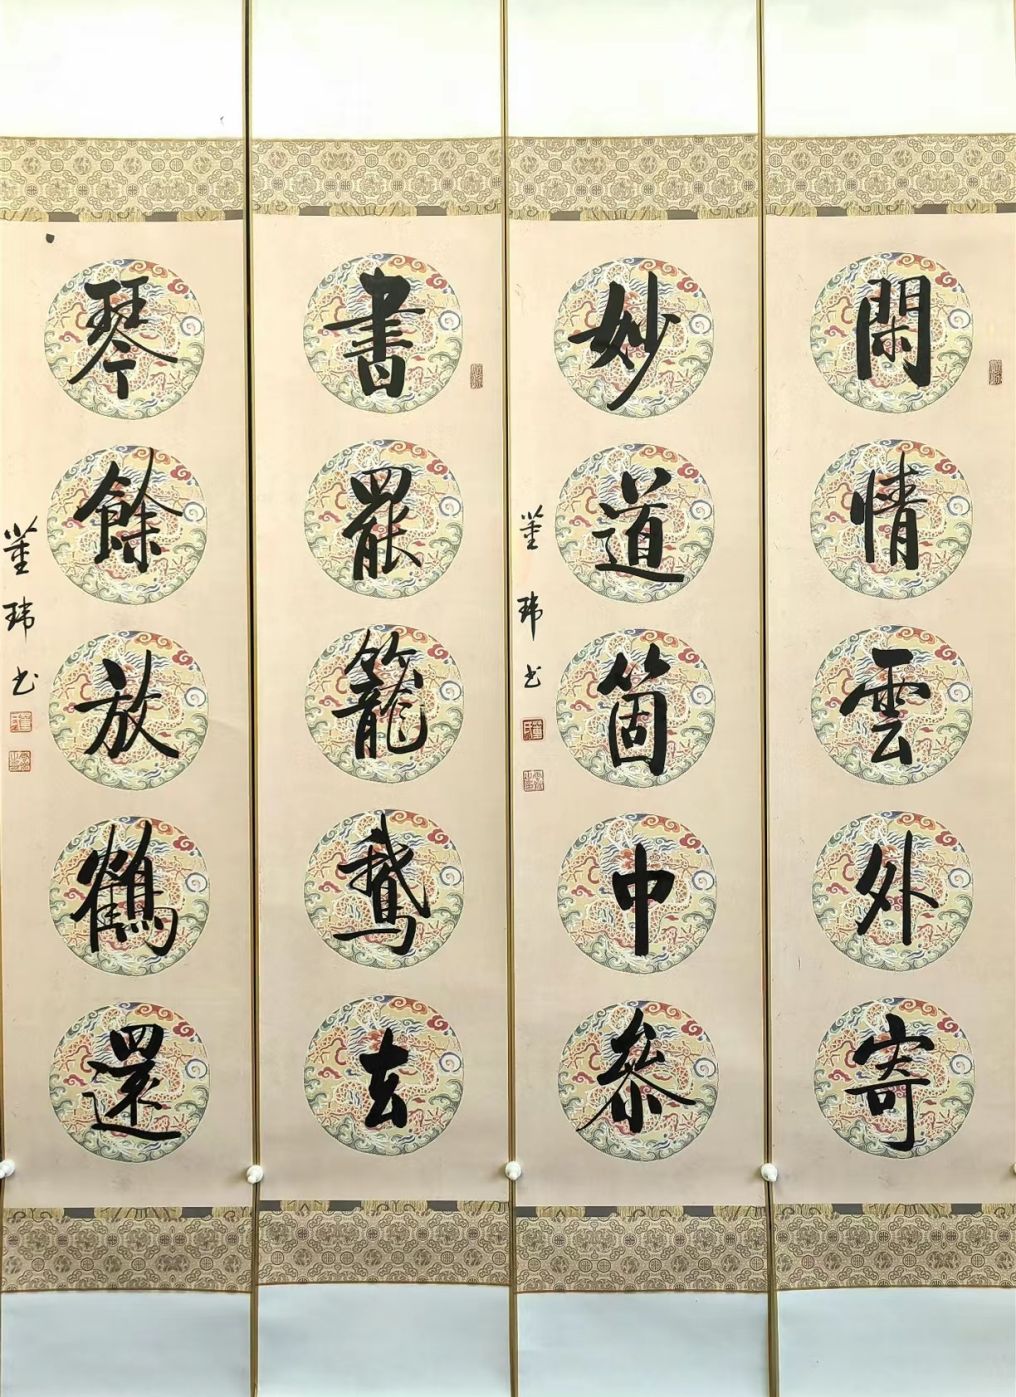 閑情雲外寄
妙道箇中參
董玮书
書罷籠鵞去
琴餘放鶴還
董玮书